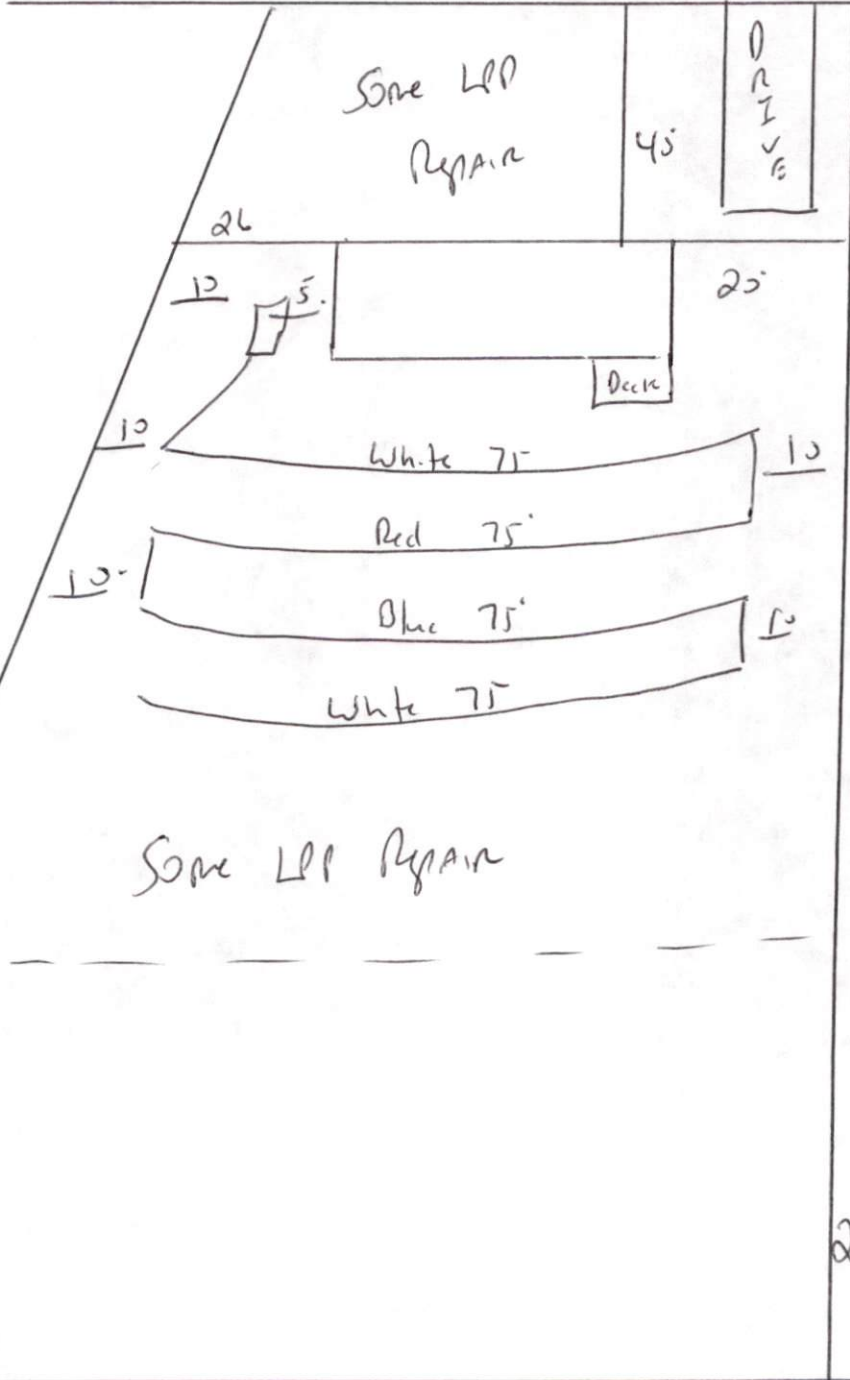 Same LPP
Repair
DRIVE
45
26
10
5
25
Deck
10
White 75
10
Red 75'
10
Blue 75'
10
White 75
Same LPP Repair
2